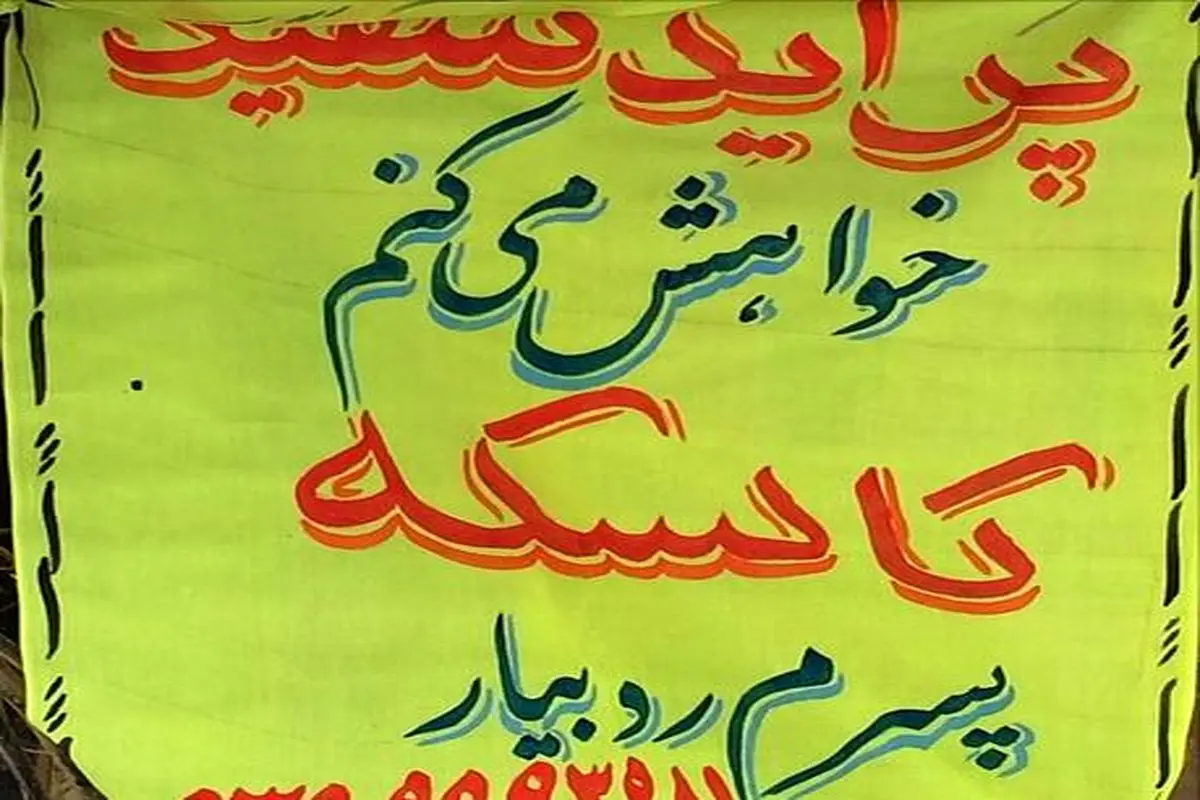 پراید سفید
خواهش می کنم
کالسکه
پسرم رد بیار